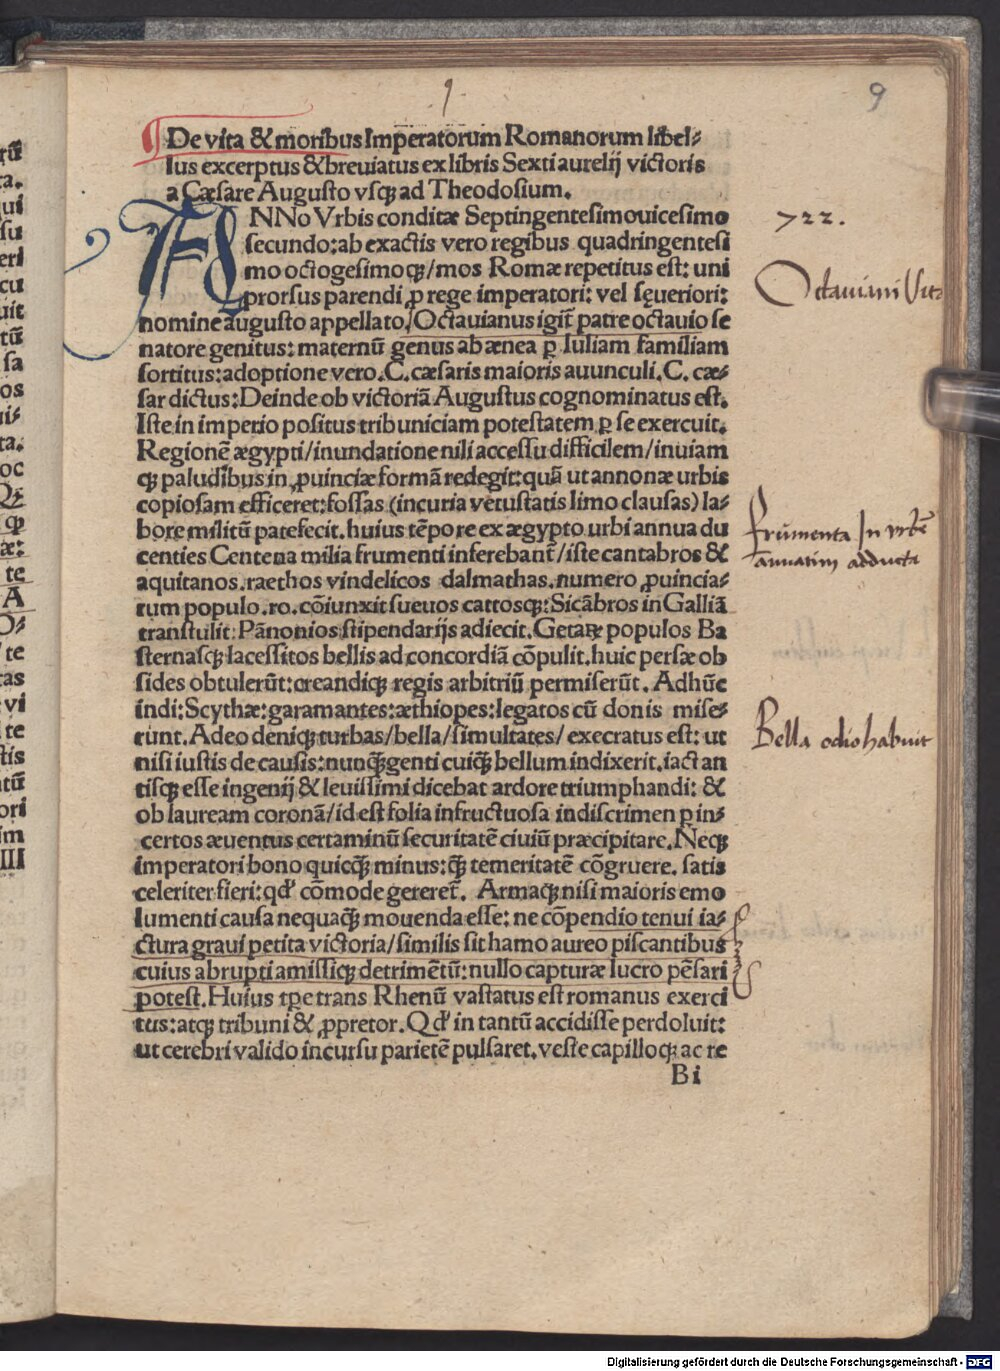 9
9
¶De vita & moribus Imperatorum Romanorum libel⸗
lus excerptus & breuiatus ex libris Sexti aurelij victoris
a Cæsare Augusto vsq; ad Theodosium.
ANNo Vrbis conditæ Septingentesimouicesimo
secundo: ab exactis vero regibus quadringentesi
mo octogesimoq;/mos Romæ repetitus est: uni
prorsus parendi ꝓ rege imperatori: vel sęueriori:
nomine augusto appellato/Octauianus igit̃ patre octauio se
natore genitus: maternũ genus ab ænea ꝑ Iuliam familiam
sortitus: adoptione vero. C. cæsaris maioris auunculi. C. cæ⸗
sar dictus: Deinde ob victoriã Augustus cognominatus est.
Iste in imperio positus tribuniciam potestatem ꝑ se exercuit.
Regionẽ ægypti/inundatione nili accessu difficilem/inuiam
q; paludibus in ꝓuinciæ formã redegit: quã ut annonæ urbis
copiosam efficeret: fossas (incuria vetustatis limo clausas) la⸗
bore militũ patefecit. huius tẽpore ex ægypto urbi annua du
centies Centena milia frumenti inferebant̃/iste cantabros &
aquitanos. raethos vindelicos dalmathas. numero ꝓuincia⸗
rum populo. ro. cõiunxit sueuos cattosq;: Sicãbros in Galliã
transtulit: Pãnonios stipendarijs adiecit. Getaꝝ populos Ba
sternasq; lacessitos bellis ad concordiã cõpulit. huic persæ ob
sides obtulerũt: creandiq; regis arbitriũ permiserũt. Adhũc
indi: Scythæ: garamantes: æthiopes: legatos cũ donis mise⸗
runt. Adeo deniq; turbas/bella/simultates/ execratus est: ut
nisi iustis de causis: nunq̃; genti cuiq̃; bellum indixerit. iactan
tisq; esse ingenij & leuissimi dicebat ardore triumphandi: &
ob lauream coronã/id est folia infructuosa in discrimen ꝑ in⸗
certos æuentus certaminũ securitatẽ ciuiũ præcipitare. Neq;
imperatori bono quicq̃; minus: q̃; temeritatẽ cõgruere. satis
celeriter fieri: qd' cõmode gereret̃. Armaq; nisi maioris emo
lumenti causa nequaq̃; mouenda esse: ne cõpendio tenui ia⸗
ctura graui petita victoria/similis sit hamo aureo piscantibus
cuius abrupti amissiq; detrimẽtũ: nullo capturæ lucro pẽsari
potest. Huius tꝑe trans Rhenũ vastatus est romanus exerci
tus: atq; tribuni & ꝓpretor. Qd' in tantũ accidisse perdoluit:
ut cerebri valido incursu parietẽ pulsaret. veste capilloq; ac re
Bi
722.
Octauiani Vita
frumenta In vrbẽ
annatim adducta
Bella odio habuit
rũ
ta.
qui
su
eri
cu
uit
tũ
sa
os
ui⸗
ta.
oc
te
A
te
tas
vi
te
tis
tũ
ori
im
III
Digitalisierung gefördert durch die Deutsche Forschungsgemeinschaft - DFG